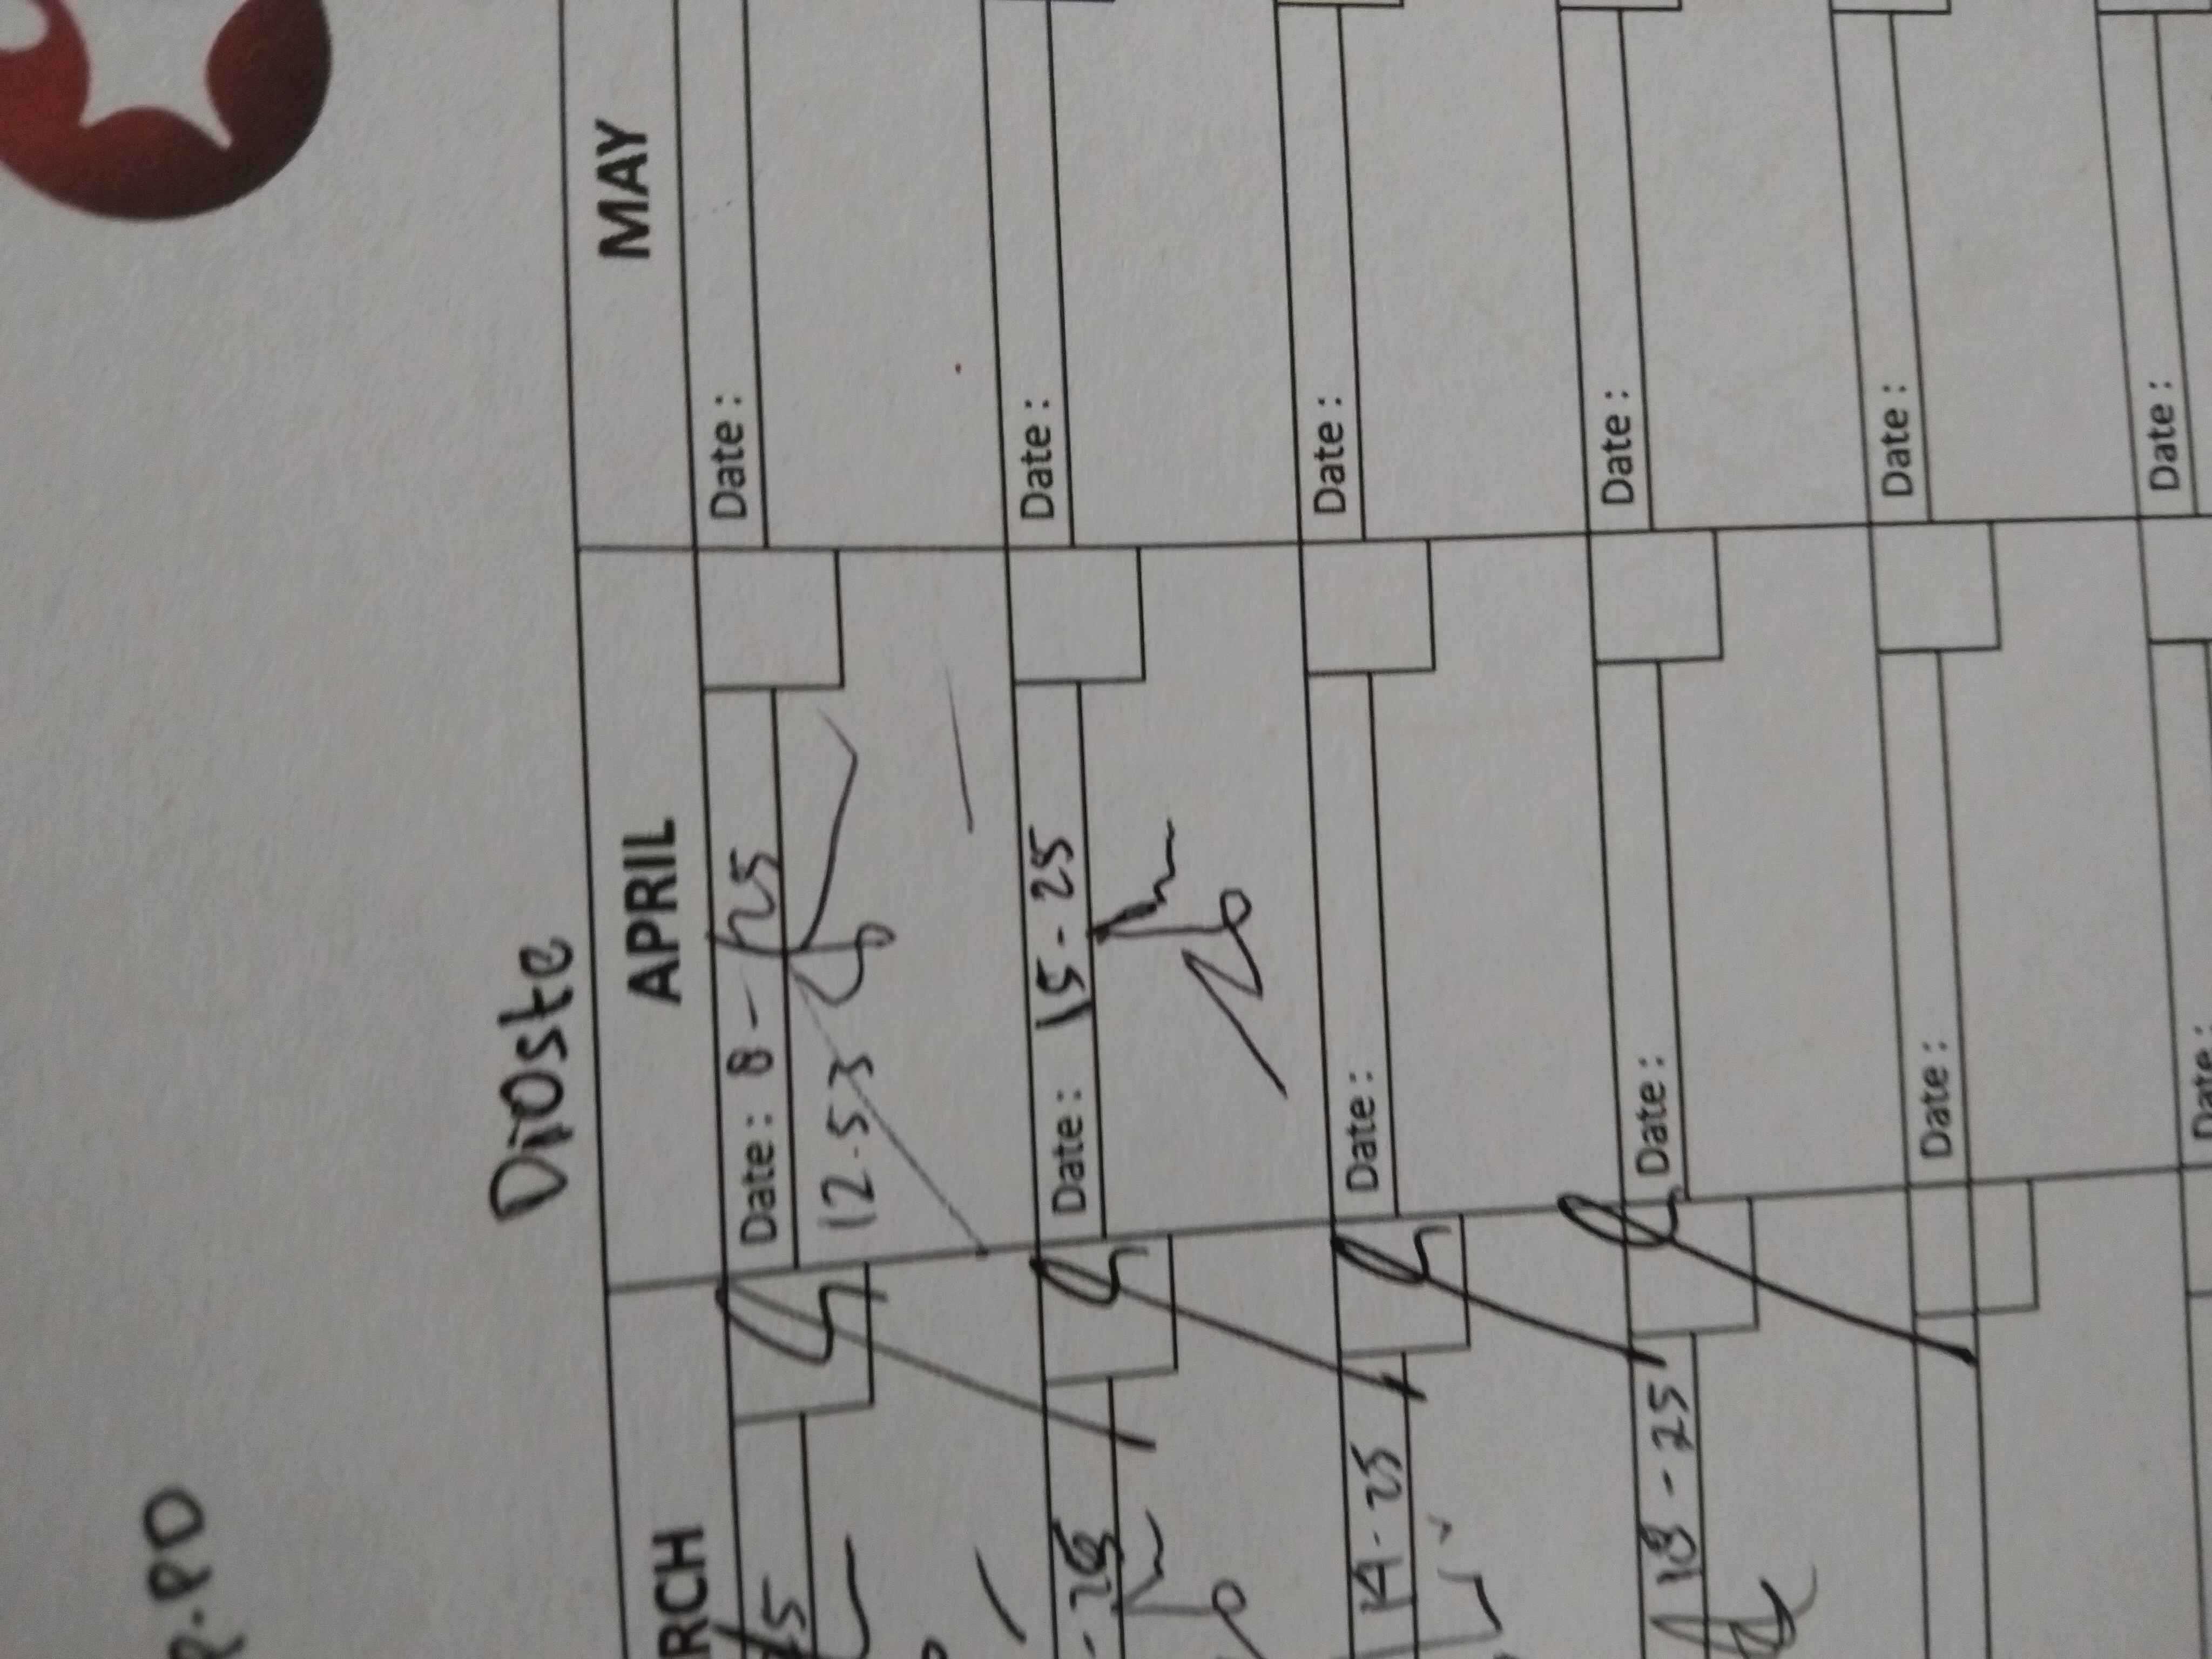 Dioste
RCH APRIL MAY
Date: 8 - 25 Date:
12.53
Date: 15-25 Date:
14-25 Date: Date:
18-25 Date: Date:
Date: Date:
Date: Date: